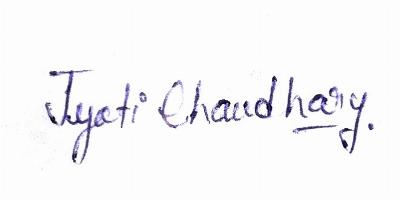 Jyoti Chaudhary.